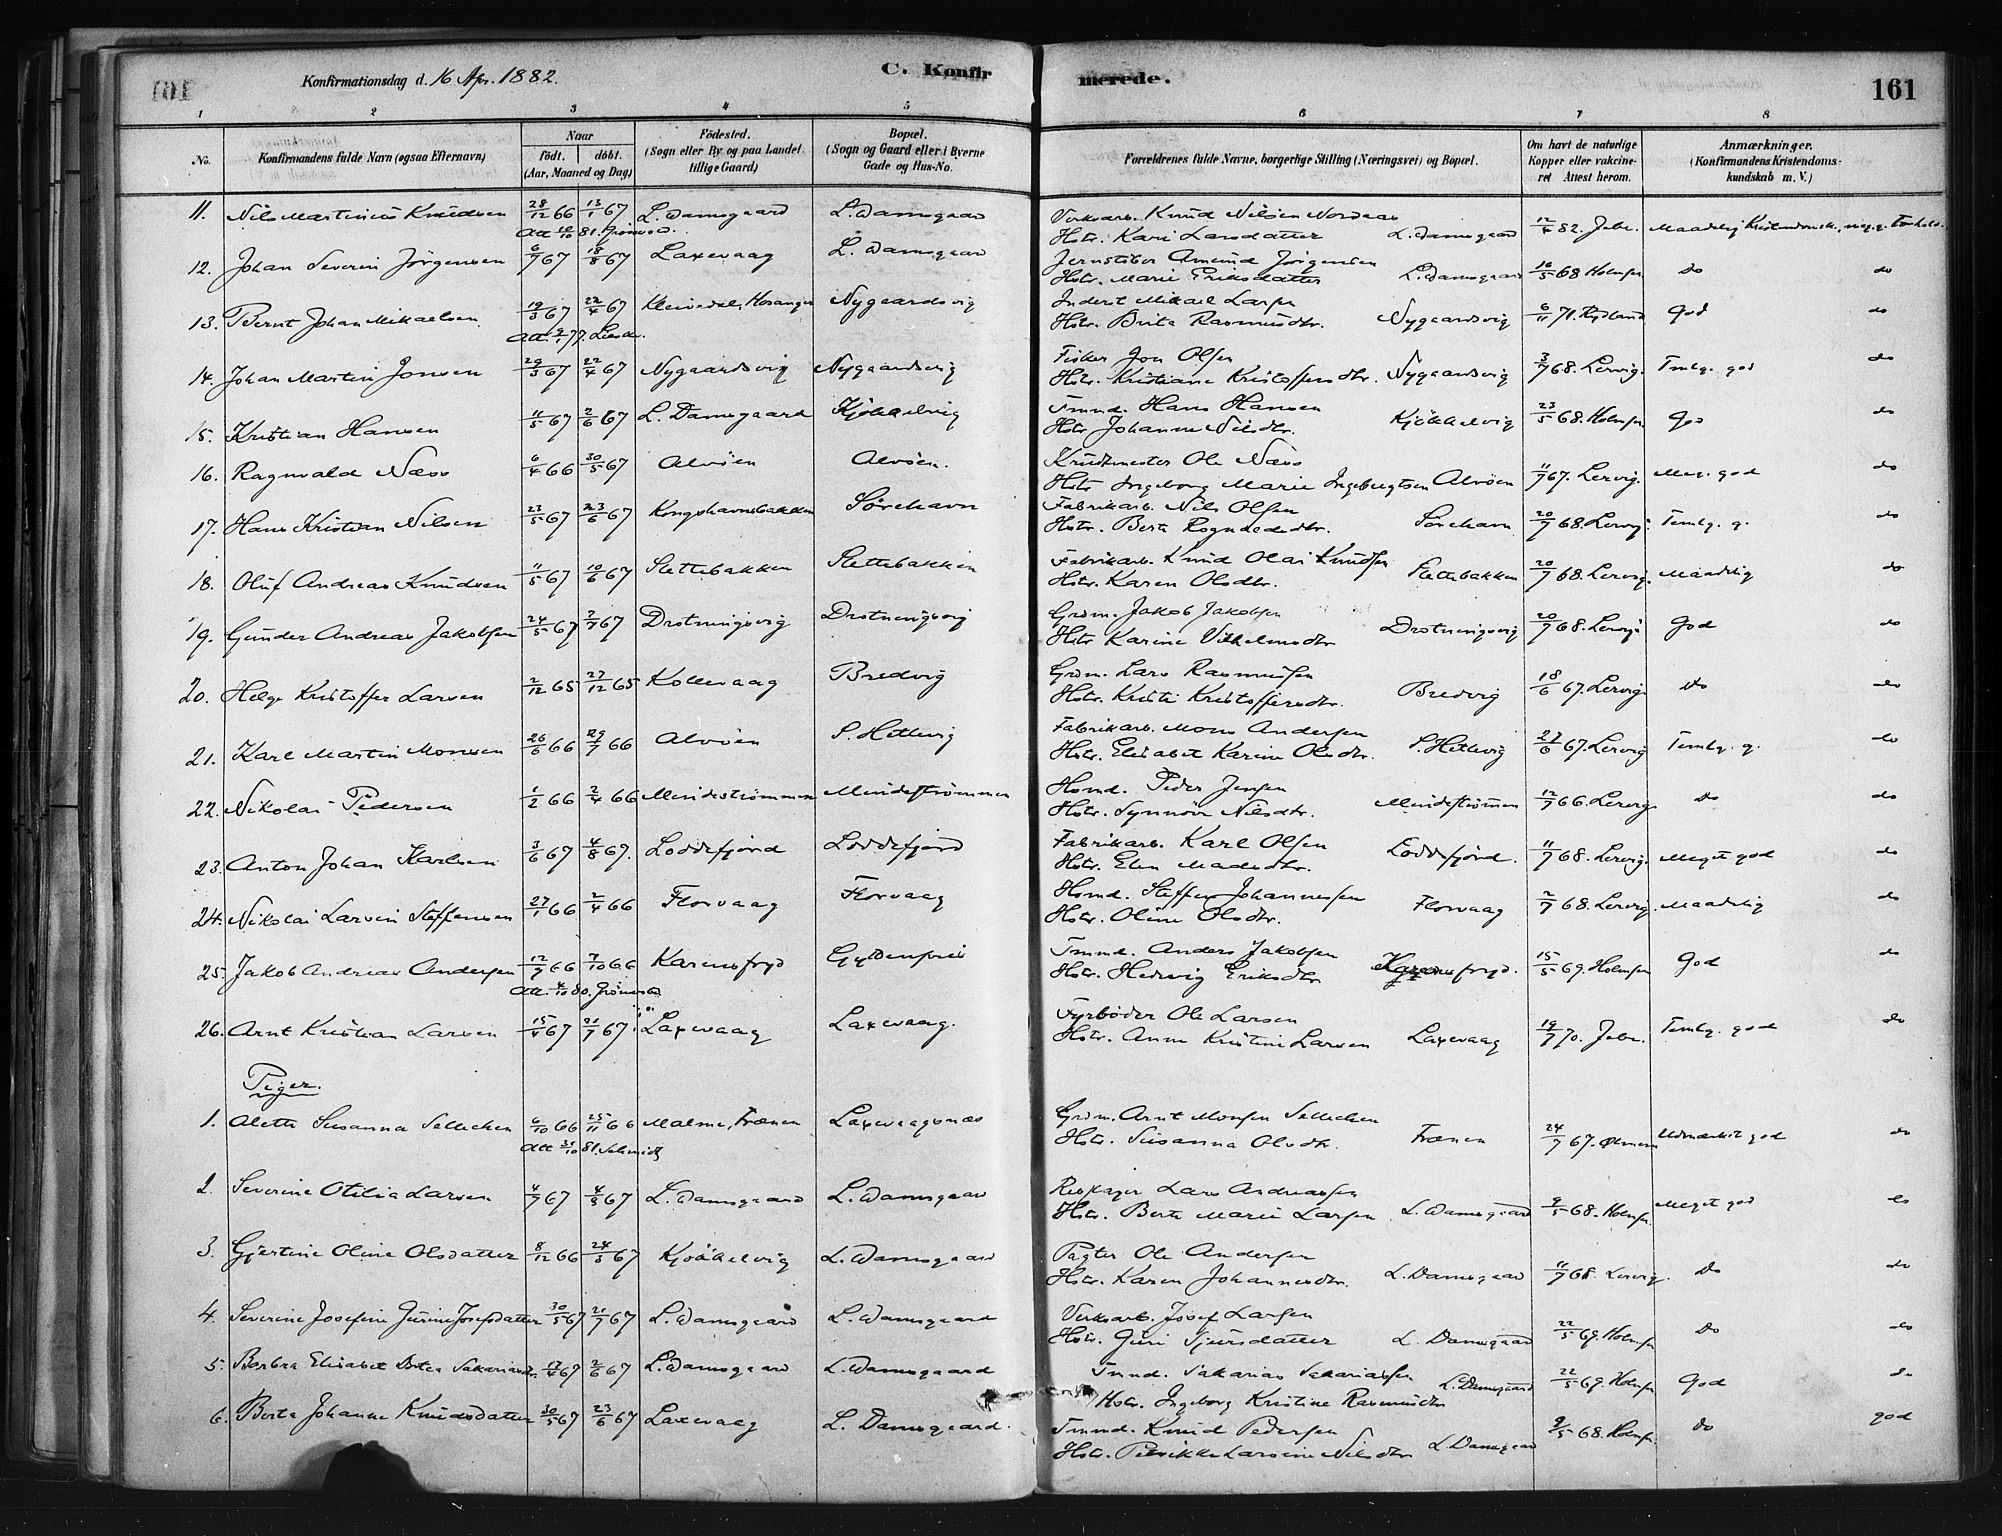 Konfirmationsdag d. 16 Apr. 1882.
C. Konfir
merede.
161
1 2 3 4 5 6 7 8
No.
Konfirmandens fulde Navn (ogsaa Efternavn)
Naar
født. døbt.
(Aar, Maaned og Dag)
Fødested.
(Sogn eller By og paa Landet
tillige Gaard)
Bopæl.
(Sogn og Gaard eller i Byerne
Gade og Hus-No.
Forældrenes fulde Navne, borgerlige Stilling (Næringsvei) og Bopæl.
Om havt de naturlige
Kopper eller vakcine-
ret Attest herom.
Anmærkninger.
(Konfirmandens Kristendoms-
kundskab m. V.)
11. Nils Martinius Knudsen 28/12 66 13/1 67 L. Damsgaard L. Damsgaard Verksarb. Knud Nilsen Nordaas
Hstr. Kari Larsdatter L. Damsgaard 12/4 82. Maadelig Kristendomsk., meg. g. Forhold.
12. Johan Severin Jørgensen 6/7 67 18/8 67 Laxevaag L. Damsgaard Jernstøber Amund Jørgensen
Hstr. Marie Eriksdatter L. Damsgaard 10/5 68 Holmsen do do
13. Bernt Johan Mikaelsen 19/3 67 22/4 67 Kleivedal, Hosanger Nygaardsvig Inderst Mikael Larsen
Hstr. Brita Rasmusdtr. Nygaardsvig 6/11 71. Rydland god do
14. Johan Martin Jonsen 29/3 67 22/4 67 Nygaardsvig Nygaardsvig Fisker Jon Olsen
Hstr. Kristiane Kristoffersdtr. Nygaardsvig 3/7 68. Lervig. Temlg. god do
15. Kristian Hansen 11/5 67 2/6 67 L. Damsgaard Kjøkkelvig Tmmd. Hans Hansen
Hstr. Johanne Nilsdtr. Kjøkkelvig 23/5 68. Holmsen God do
16. Ragnvald Næss 6/4 66 30/5 67 Alvøen Alvøen. Krudtmester Ole Næss
Hstr Ingeborg Marie Ingebrigtsen Alvøen 11/7 67. Lervig. Meg. god do
17. Hans Kristian Nilsen 23/5 67 23/6 67 Kongshavnsbakken Sørehavn Fabrikarb. Nils Olsen
Hstr. Berta Rognaldsdtr. Sørehavn 20/7 68. Lervig. Temlg. g. do
18. Oluf Andreas Knudsen 11/5 67 10/6 67 Slettebakken Slettebakken Fabrikarb. Knud Olai Knudsen
Hstr. Karen Olsdtr. Slettebakken 20/7 68. Lervig. Maadelig do
19. Gunder Andreas Jakobsen 24/5 67 7/7 67 Drotningsvig Drotningsvig Grdm. Jakob Jakobsen
Hstr Karine Vilhelmsdtr Drotningsvig 20/7 68. Lervig God do
20. Helge Kristoffer Larsen 2/12 65 27/12 65 Kollevaag Bredvig Grdm. Lars Rasmussen
Hstr. Kristi Kristoffersdtr. Bredvig 18/6 67. Lervig do do
21. Karl Martin Monsen 26/6 66 29/7 66 Alvøen S. Hetlevig Fabrikarb. Mons Andersen
Hstr. Elisabet Karine Olsdtr. S. Hetlevig 27/6 67. Lervig Temlg. g. do
22. Nikolai Pedersen 1/2 66 2/4 66 Mindestrømmen Mindestrømmen Hsmd. Peder Jensen
Hstr. Synnøve Nilsdtr. Mindestrømmen 12/7 66. Lervig do do
23. Anton Johan Karlsen 3/6 67 4/8 67. Loddefjord Loddefjord Fabrikarb. Karl Olsen
Hstr. Elen Madsdtr. Loddefjord. 11/7 68. Lervig. Meget god do
24. Nikolai Larvin Steffensen 27/1 66 2/4 66 Florvaag Florvaag Hsmd. Steffen Johannessen
Hstr. Oline Olsdtr. Florvaag 2/7 68. Lervig. Maadelig do
25. Jakob Andreas Andersen 12/7 66 7/10 66 Karensfryd Gyldenpris Tmmd. Anders Jakobsen
Hstr. Hedevig Eriksdtr Karensfryd. 15/5 69. Holmsen God do
26. Arnt Kristian Larsen 15/4 67 21/7 67 Laxevaag Laxevaag. Fyrbøder Ole Larsen
Hstr. Anne Kristine Larsen Laxevaag 19/7 70. Temlg. god do
Piger.
1. Alette Susanna Sellechen 6/10 66 25/11 66 Malme, Frænen Laxevaagsnæs Grdm. Arnt Monsen Sellechen
Att 31/10 81. Schmidt Hstr. Susanna Olsdtr. Frænen 24/7 67. Udmærket god do
2. Severine Otilia Larsen 4/7 67 4/8 67 L. Damsgaard L. Damsgaard Lars Andreassen
Hstr. Berte Marie Larsen L. Damsgaard 9/5 68. Holmsen. Meget god do
3. Gjertine Oline Olsdatter 8/12 66 24/3 67 Kjøkkelvig L. Damsgaard Pagter Ole Andersen
Hstr. Karen Johannesdtr. L. Damsgaard 11/7 68. Lervig. do do
4. Severine Josefine Gurine Josefsdatter 30/5 67 21/7 67 L. Damsgaard L. Damsgaard Verksarb. Josef Larsen
Hstr. Guri Sjursdatter L. Damsgaard 22/5 69. Holmsen do do
5. Barbra Elisabet Dortea Sakariasdtr. 17/4 67 2/6 67 L. Damsgaard L. Damsgaard Tmmd. Sakarias Sakariassen
Hstr. Ingeborg Kristine Rasmusdtr L. Damsgaard 22/5 69. Holmsen God do
6. Berta Johanne Knudsdatter 30/5 67 23/6 67 Laxevaag L. Damsgaard. Tmmd. Knud Pedersen
Hstr. Larsine Nilsdtr L. Damsgaard 9/5 68. Holmsen. do god